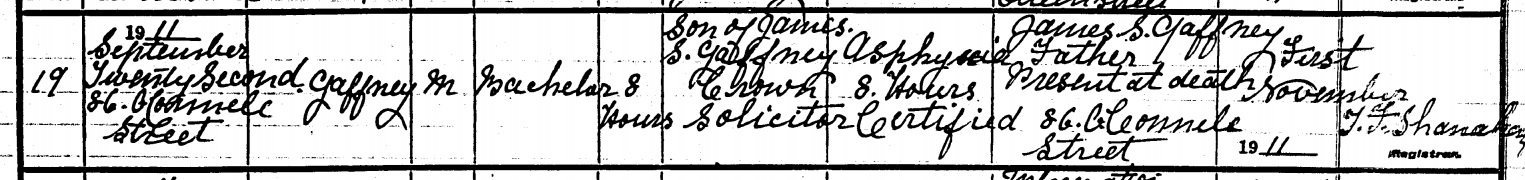 19
1911
September
Twenty Second
86. O'Connell
Street
Gaffney
M
Bachelor
8
Hours
Son of James.
S. Gaffney
Crown
Solicitor
Asphyxia
8. Hours
Certified
James S. Gaffney
Father
Present at death
86. O'Connell
Street
First
November
1911
T. F. Shanahan
Registrar.